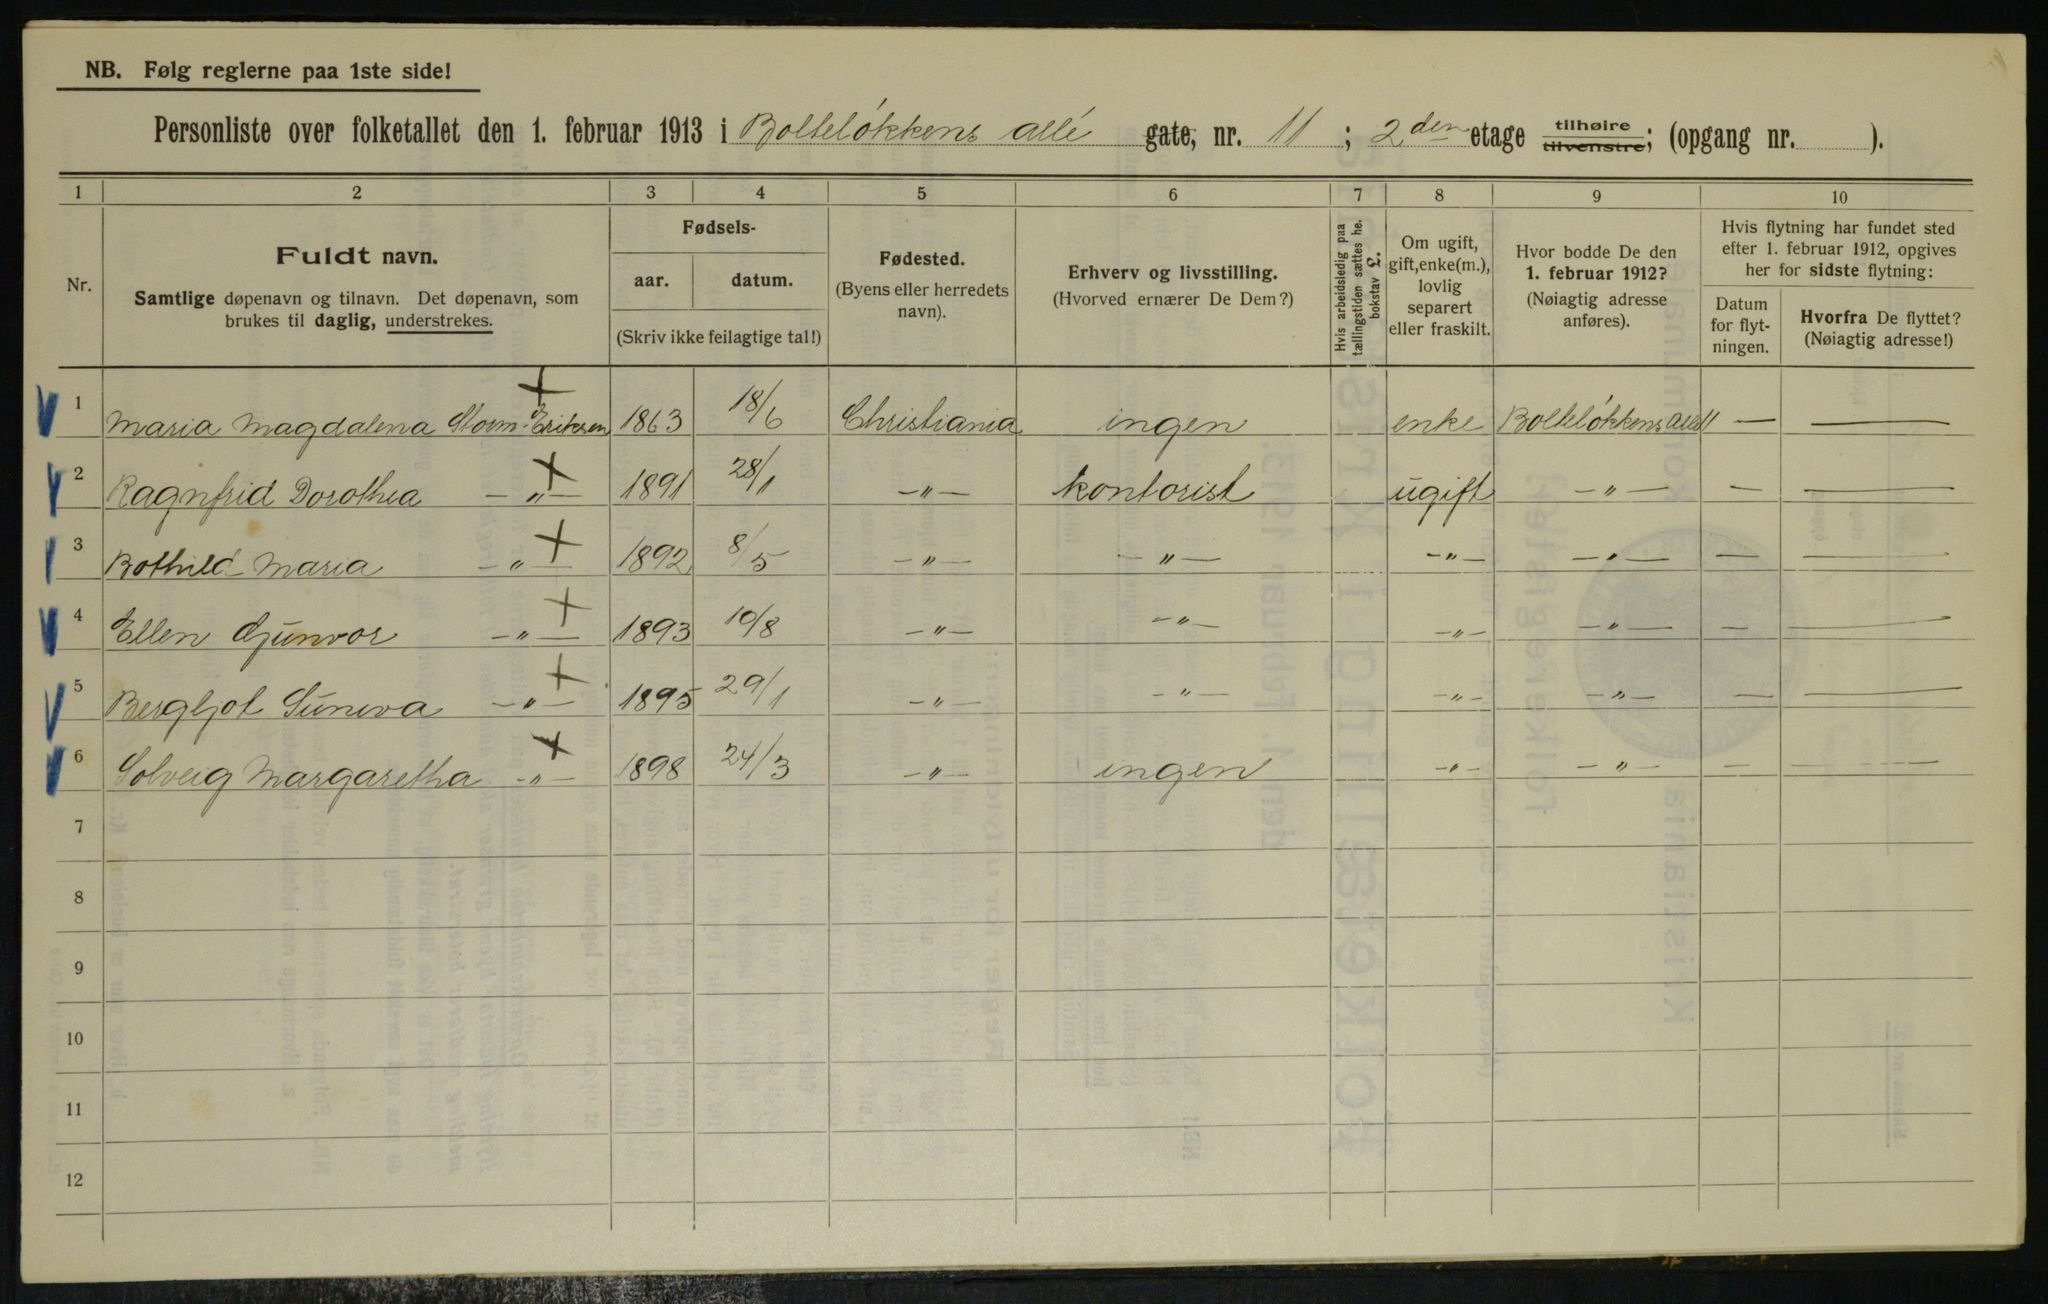 NB. Følg reglerne paa 1ste side!
Personliste over folketallet den 1. februar 1913 i Bolteløkkens allé gate, nr. 11 ; 2den etage tilhøire tilvenstre; (opgang nr. ).
1 2 3 4 5 6 7 8 9 10
Nr.
Fuldt navn.
Samtlige døpenavn og tilnavn. Det døpenavn, som
brukes til daglig, understrekes.
Fødsels-
aar. datum.
(Skriv ikke feilagtige tal!)
Fødested.
(Byens eller herredets
navn).
Erhverv og livsstilling.
(Hvorved ernærer De Dem?)
Hvis arbeidsledig paa
tællingstiden sættes he.
bokstav L.
Om ugift,
gift, enke(m.),
lovlig
separert
eller fraskilt.
Hvor bodde De den
1. februar 1912?
(Nøiagtig adresse
anføres).
Hvis flytning har fundet sted
efter 1. februar 1912, opgives
her for sidste flytning:
Datum
for flyt-
ningen.
Hvorfra De flyttet?
(Nøiagtig adresse!)
1 Maria Magdalena Storm-Eriksen 1863 18/6 Christiania ingen enke Bolteløkkens allé 11 — —
2 Ragnfrid Dorothea —„— 1891 28/1 —„— kontorist ugift —„— — —
3 Bothild Maria —„— 1892 8/5 —„— —„— —„— —„— — —
4 Ellen Gunvor —„— 1893 10/8 —„— —„— —„— —„— — —
5 Bergljot Suneva —„— 1895 29/1 —„— —„— —„— —„— — —
6 Solveig Margaretha —„— 1898 24/3 —„— ingen —„— —„— — —
7
8
9
10
11
12